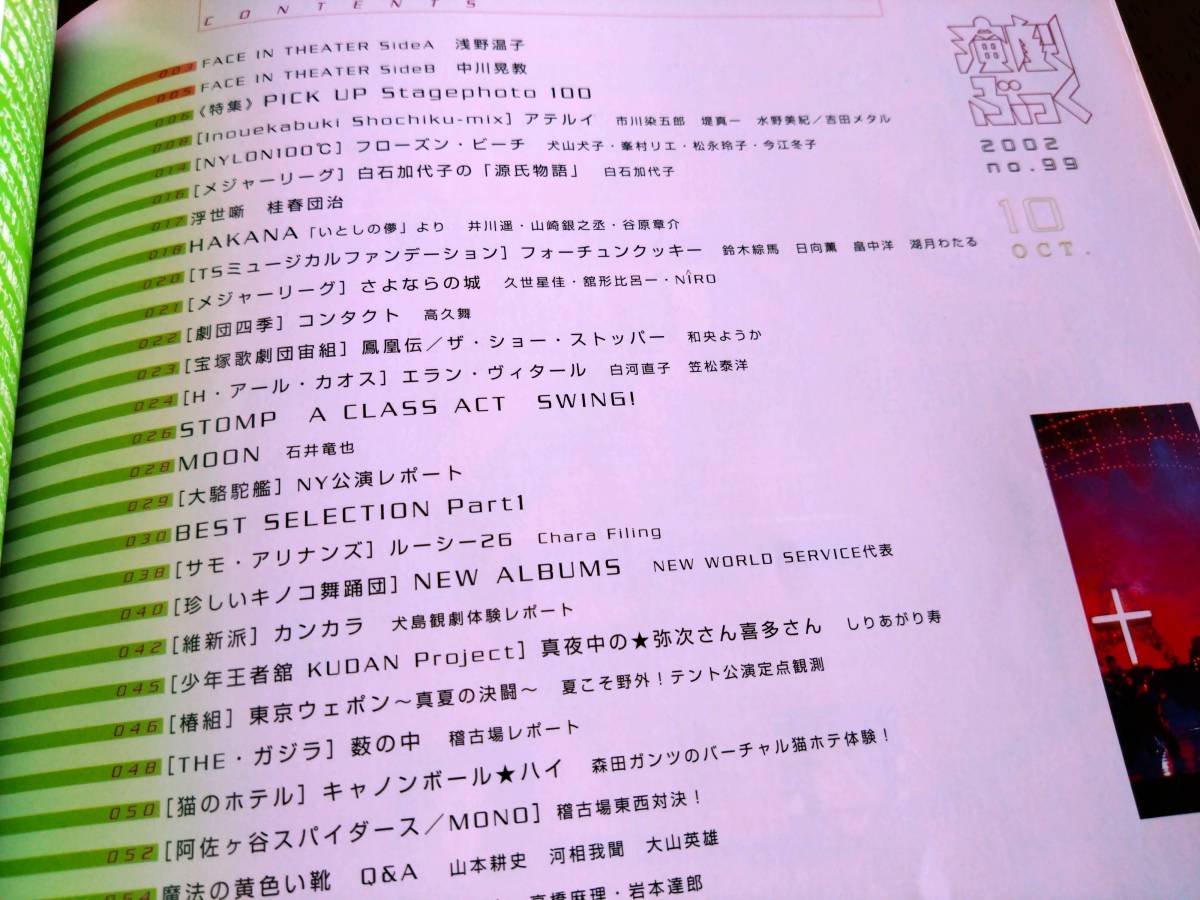 CONTENTS
003 FACE IN THEATER SideA 浅野温子
005 FACE IN THEATER SideB 中川晃教
006 《特集》PICK UP Stagephoto 100
008 [Inouekabuki Shochiku-mix] アテルイ 市川染五郎 堤真一 水野美紀/吉田メタル
014 [NYLON100℃] フローズン・ビーチ 犬山犬子・峯村リエ・松永玲子・今江冬子
016 [メジャーリーグ] 白石加代子の「源氏物語」 白石加代子
017 浮世噺 桂春団治
018 HAKANA「いとしの儚」より 井川遥・山崎銀之丞・谷原章介
020 [TSミュージカルファンデーション] フォーチュンクッキー 鈴木綜馬 日向薫 畠中洋 湖月わたる
021 [メジャーリーグ] さよならの城 久世星佳・舘形比呂一・NÎRO
022 [劇団四季] コンタクト 高久舞
023 [宝塚歌劇団宙組] 鳳凰伝/ザ・ショー・ストッパー 和央ようか
024 [H・アール・カオス] エラン・ヴィタール 白河直子 笠松泰洋
026 STOMP A CLASS ACT SWING!
028 MOON 石井竜也
029 [大駱駝艦] NY公演レポート
030 BEST SELECTION Part1
038 [サモ・アリナンズ] ルーシー26 Chara Filing
040 [珍しいキノコ舞踊団] NEW ALBUMS NEW WORLD SERVICE代表
042 [維新派] カンカラ 犬島観劇体験レポート
045 [少年王者舘 KUDAN Project] 真夜中の★弥次さん喜多さん しりあがり寿
046 [椿組] 東京ウェポン〜真夏の決闘〜 夏こそ野外!テント公演定点観測
048 [THE・ガジラ] 薮の中 稽古場レポート
050 [猫のホテル] キャノンボール★ハイ 森田ガンツのバーチャル猫ホテ体験!
052 [阿佐ヶ谷スパイダース/MONO] 稽古場東西対決!
054 魔法の黄色い靴 Q&A 山本耕史 河相我聞 大山英雄
高橋麻理・岩本達郎
演劇
ぶっく
2002
no.99
10
OCT.